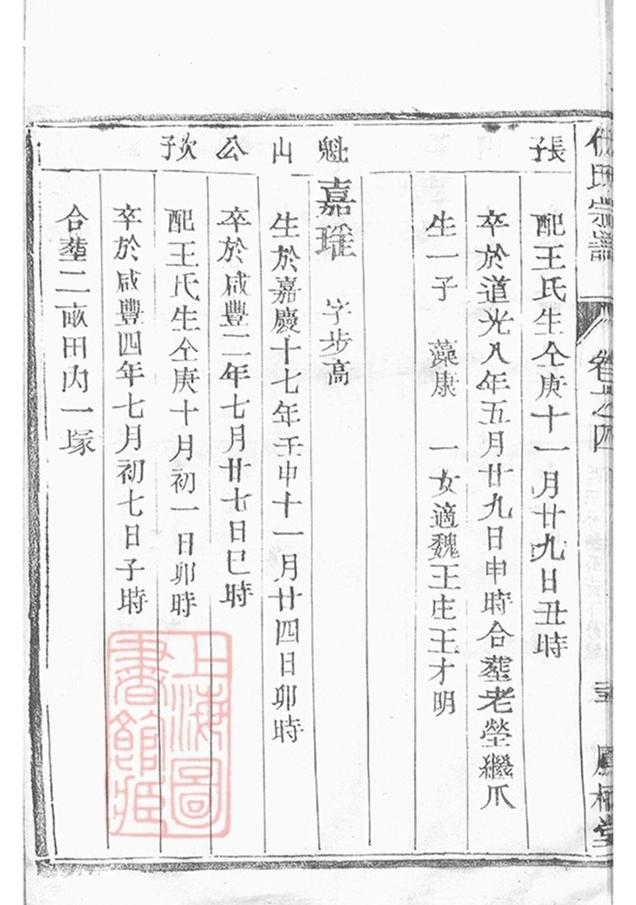 氏宗譜 卷之四 鳳栖堂
長子
配王氏生仝庚十一月廿九日丑時
卒於道光八年五月廿九日申時合塟老塋繼爪
生一子 藻康 一女適魏王庄王才明
魁山公次子
嘉琟 字步高
生於嘉慶十七年壬申十一月廿四日卯時
卒於咸豐二年七月廿七日巳時
配王氏生仝庚十月初一日卯時
卒於咸豐四年七月初七日子時
合塟二畝田內一塚
上海圖
書館藏